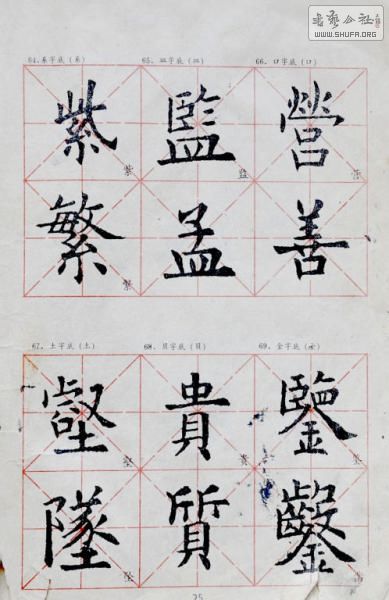 书艺公社
WWW.SHUFA.ORG
64、系字底（糸） 65、皿字底（皿） 66、口字底（口）
紫 監 營
繁 孟 善
67、土字底（土） 68、貝字底（貝） 69、金字底（金）
壑 貴 鑒
墜 質 鑿